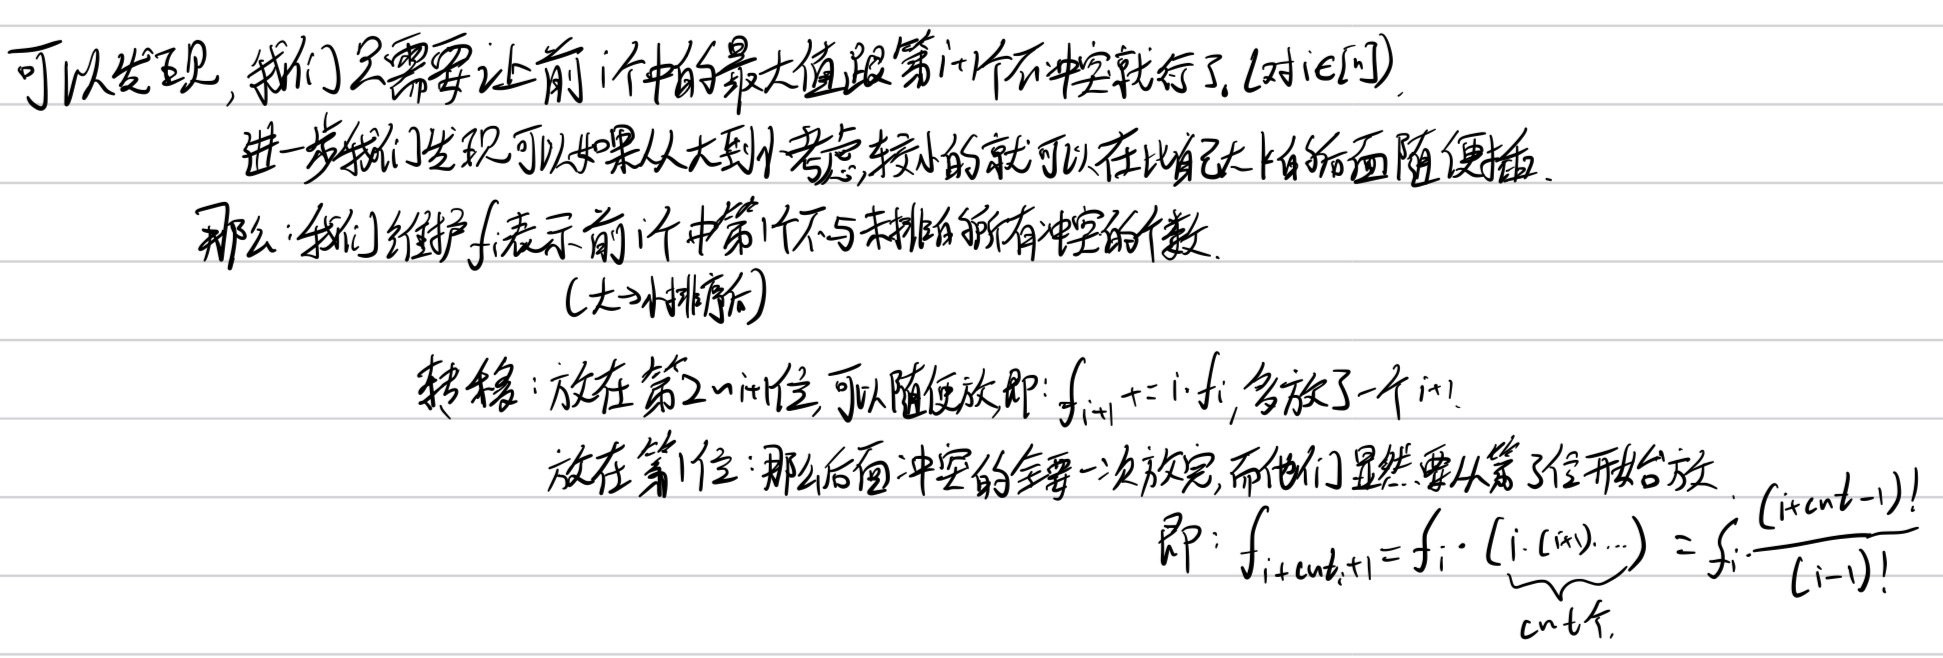 可以发现,我们只需要让前i个中的最大值跟第i+1个不冲突就行了.(对i∈[n]).
进一步我们发现可以如果从大到小考虑,较小的就可以在比自己大的后面随便插.
那么:我们维护f_i表示前i个中第1个不与未排的所有冲突的个数.
(大→小排序后)
转移:放在第2~i+1位,可以随便放,即: f_{i+1} += i·f_i, 多放了一个i+1.
放在第1位:那么后面冲突的全要一次放完,而他们显然要从第3位开始放
即: f_{i+cnt_i+1} = f_i·(i·(i+1)·...) = f_i·\frac{(i+cnt-1)!}{(i-1)!}
cnt个.